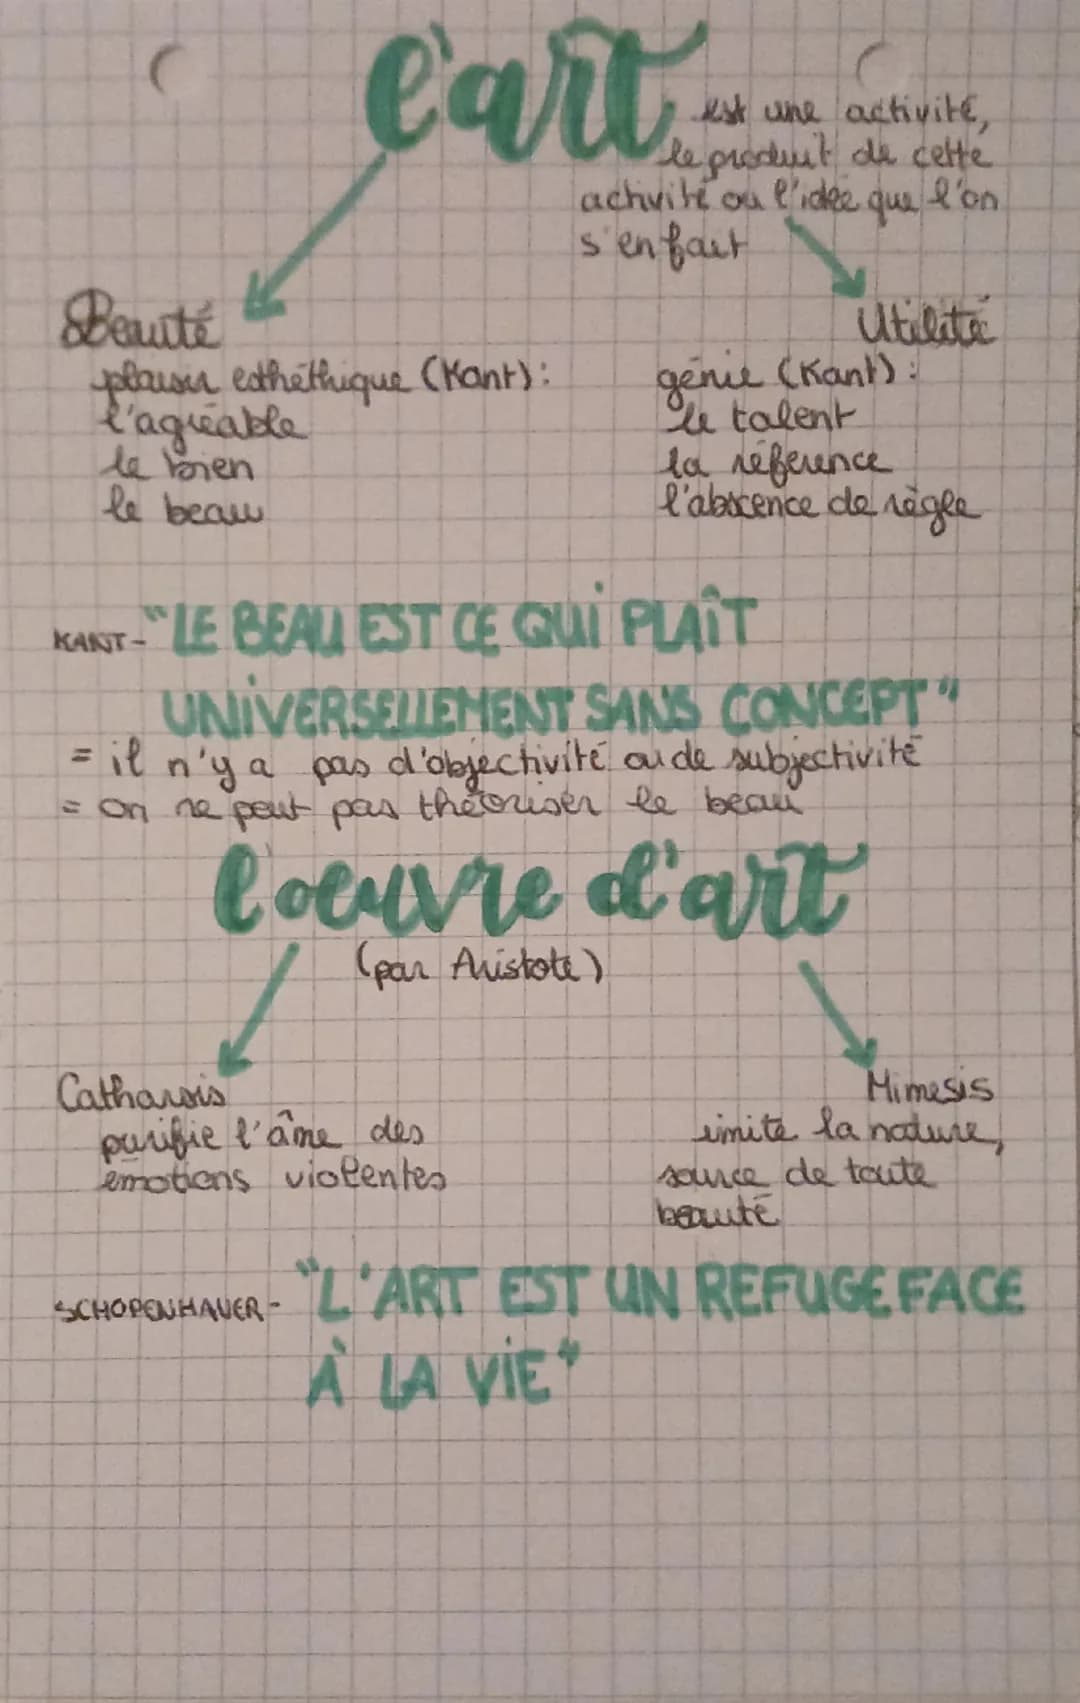 l'art
est une activité,
le produit de cette
activité ou l'idée que l'on
s'en fait
Beauté
plaisir esthéthique (Kant):
l'agréable
le bien
le beau
Utilité
génie (Kant):
le talent
la référence
l'abscence de règle
KANT - "LE BEAU EST CE QUI PLAÎT
UNIVERSELLEMENT SANS CONCEPT"
= il n'y a pas d'objectivité ou de subjectivité
= on ne peut pas théoriser le beau
l'oeuvre d'art
(par Aristote)
Catharsis
purifie l'âme des
émotions violentes
Mimesis
imite la nature,
source de toute
beauté
SCHOPENHAUER - "L'ART EST UN REFUGE FACE
À LA VIE"